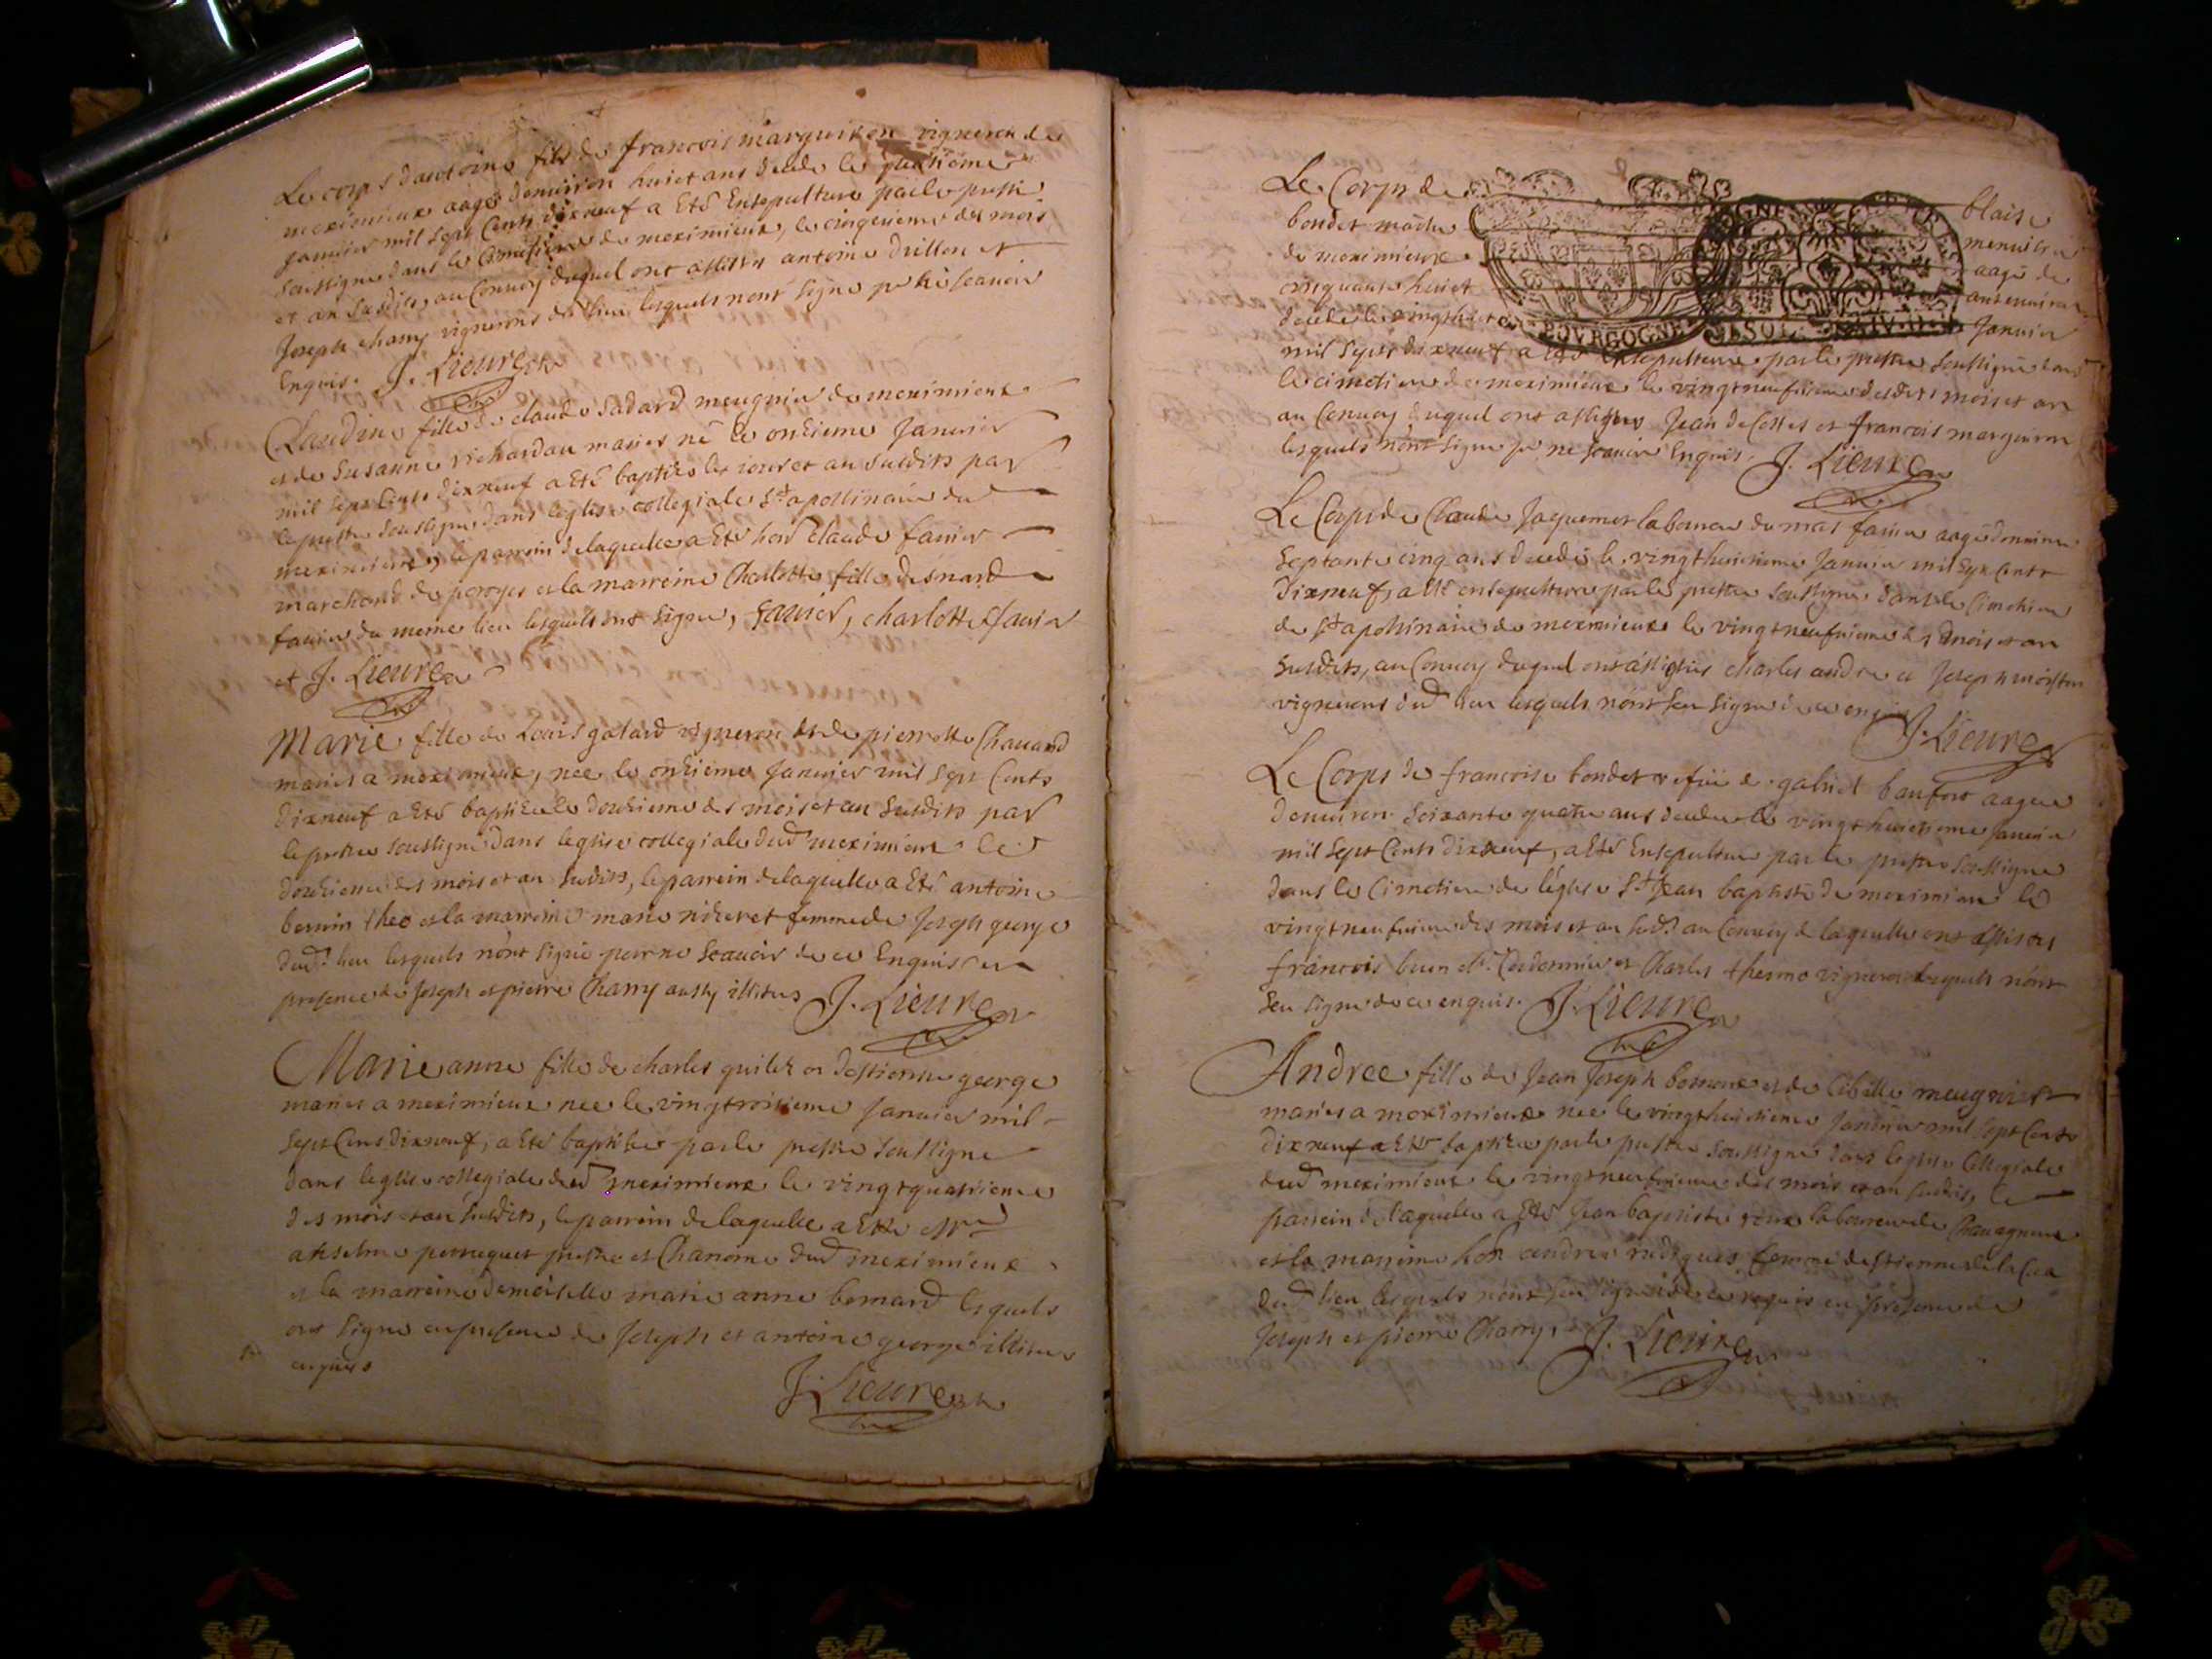 Le corps dantoine fils de francois marguiron vigneron de
meximieux aagé denuiron huict ans decede le quatrieme
januier mil sept Cents dixneuf a Eté Ensepulturé par le prestre
soussigné dans le Cimetiere de meximieux, le cinquieme des mois
et an susdits, au Conuoy duquel ont assistes antoine drillon et
Joseph charry vignerons du lieu lesquels nont signe pr ne scauoir
Enquis. J. Lieure
Claudine fille de claude sadard meugnier de meximieux
et de susanne richardau maries né le onzieme Januier
mil sept Cents dixneuf a Eté baptizé les iour et an susdits par
le prestre soussigné dans leglise collegiale St apollinaire du
meximieux, le parrein de laquelle a Eté hon claude fauier
marchand de peroges et la marreine Charlotte fille
fauier du meme lieu lesquels ont signe, fauier, charlotte fauier
et J. Lieure
Marie fille de Louis galard vigneron et de pierrette Chauand
maries a meximieux, nee le onzieme Januier mil sept Cents
dixneuf a Eté baptizee le douzieme des mois et an susdits par
le prestre soussigné dans leglise collegiale dud meximieux le
douzieme des mois et an susdits, le parrein de laquelle a Eté antoine
theo et la marreine marie femme de Joseph george
dud. lieu lesquels nont signé pour ne scauoir de ce Enquis en
presence de Joseph et pierre Charry aussy illitres J. Lieure
Marie anne fille de charles et destiennette george
maries a meximieux nee le vingtroisieme Januier mil
sept Cens dixneuf, a Eté baptizee par le prestre soussigné
dans leglise collegiale dud meximieux le vingtquatrieme
des mois et an susdits, le parrein de laquelle a Eté
anselme perruquet prestre et Chanoine dud meximieux
et la marreine demoiselle marie anne bernard lesquels
ont signe en presence de Joseph et antoine george illitres
enquis
J. Lieure
Le Corps de blaise
bondet maitre menuisier
de meximieux aagé de
cinquante huict ans enuiron
decede le vingthuict Januier
BOVRGOGNE
mil sept dixneuf a Eté Ensepulturé par le prestre soussigné dans
le cimetiere de meximieux le vingtneufuieme desdits mois et an
au Conuoy duquel ont assistes Jean de Costes et francois marguiron
lesquels nont signe pr ne scauoir Enquis. J. Lieure
Le Corps de Claude Jaquemet laboureur du mas fauier aagé denuiron
septante cinq ans decedé le vingthuictieme Januier mil sept Cents
dixneuf, a Eté ensepulturé par le prestre soussigné dans le Cimetiere
de St apollinaire de meximieux le vingtneufuieme des mois et an
susdits, au Conuoy duquel ont assistes charles andre et Joseph
vignerons dud lieu lesquels nont sceu signe de ce enquis
J. Lieure
Le Corps de francoise bondet de gabriel baufort aagee
denuiron soixante quatre ans decedee le vingthuictieme Januier
mil sept Cents dixneuf, a Eté Ensepulturee par le prestre soussigné
dans le Cimetiere de leglise St Jean baptiste de meximieux le
vingtneufuieme des mois et an susd. au Conuoy de laquelle ont assistes
francois et Charles thermo vignerons lesquels nont
sceu signe de ce enquis. J. Lieure
Andree fille de Jean Joseph et de Cibille meugnier
maries a meximieux nee le vingthuictieme Januier mil sept Cents
dixneuf a Eté baptizee par le prestre soussigné dans leglise Collegiale
dud meximieux le vingtneufuieme des mois et an susdits, le
parrein de laquelle a Eté Jean baptiste roux laboureur de
et la marreine hon andree femme destienne
dud lieu lesquels nont sceu signe de ce requis en presence de
Joseph et pierre Charry, J. Lieure